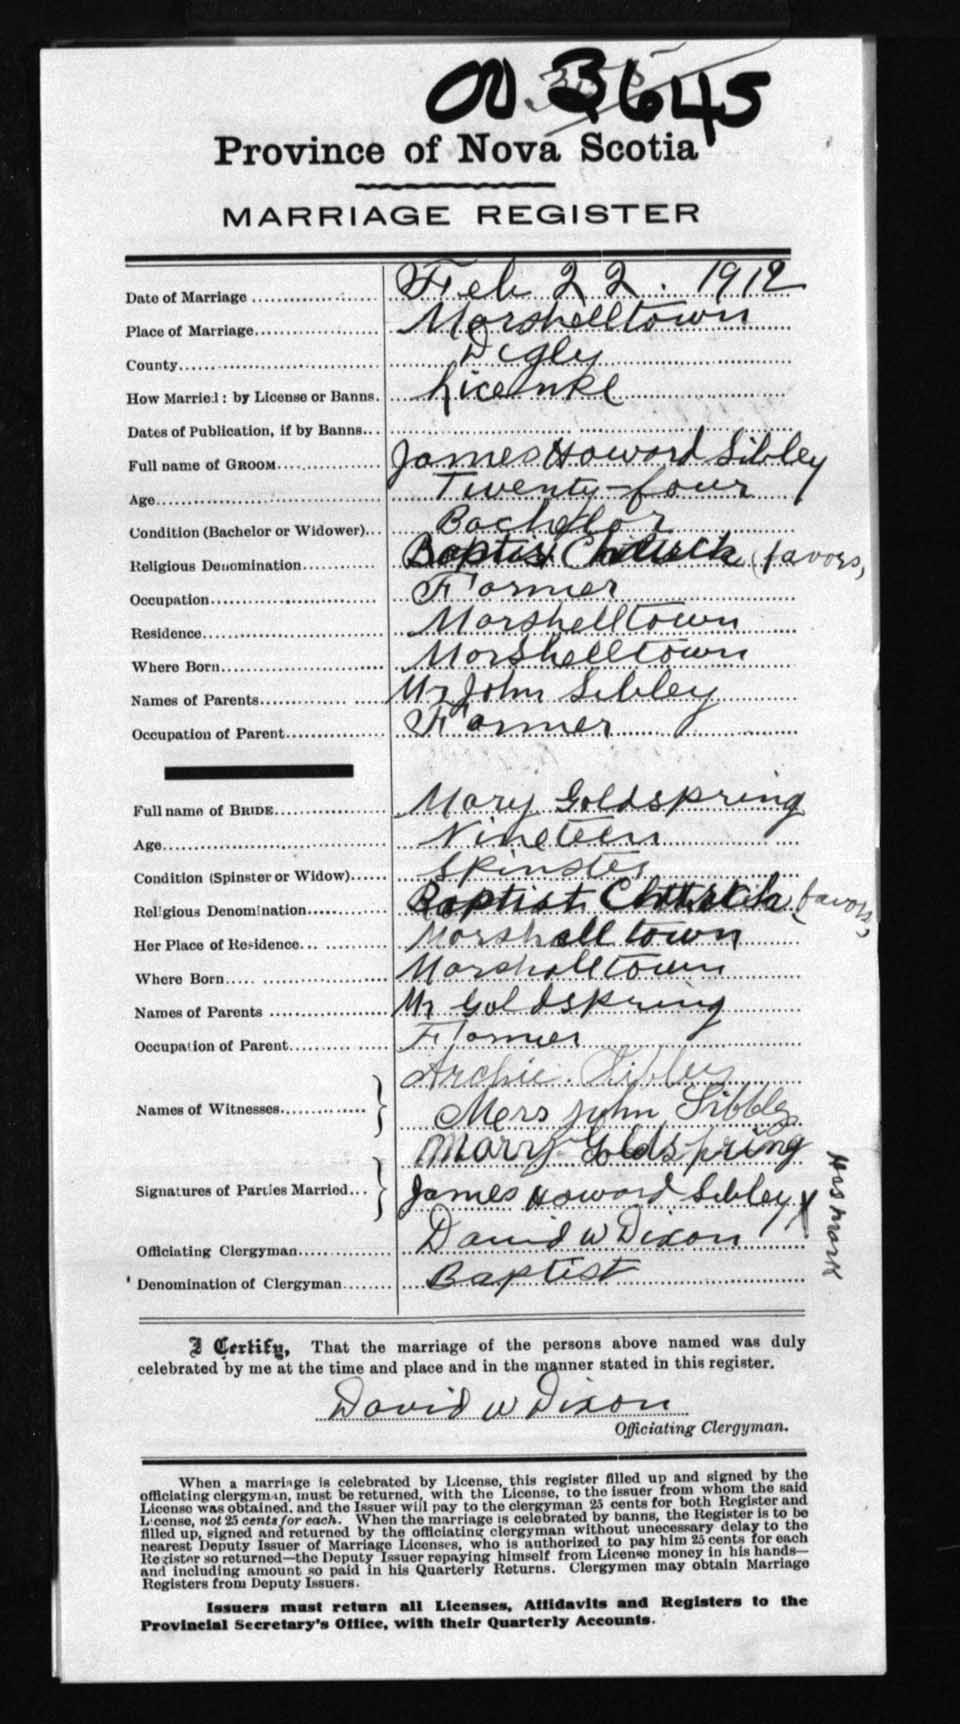 3645
Province of Nova Scotia
MARRIAGE REGISTER
Date of Marriage Feb 22. 1912
Place of Marriage Marshelltown
County Digby
How Married: by License or Banns.
Dates of Publication, if by Banns
Full name of GROOM James Howard Sibley
Age Twenty-four
Condition (Bachelor or Widower) Bachellor
Religious Denomination Baptist Church (favors,
Occupation Farmer
Residence Marshelltown
Where Born Marshelltown
Names of Parents Mr John Sibley
Occupation of Parent Farmer
Full name of BRIDE Mary Goldspring
Age Nineteen
Condition (Spinster or Widow) Spinster
Religious Denomination Baptist Church (favors,
Her Place of Residence Marshalltown
Where Born Marshalltown
Names of Parents Mr Goldspring
Occupation of Parent Farmer
Names of Witnesses Archie Sibley
Mers John Sibbley
Marry Goldspring
Signatures of Parties Married James Howard Sibley X
His mark
Officiating Clergyman David W Dixon
Denomination of Clergyman Baptist
I Certify, That the marriage of the persons above named was duly
celebrated by me at the time and place and in the manner stated in this register.
David W Dixon
Officiating Clergyman.
When a marriage is celebrated by License, this register filled up and signed by the
officiating clergyman, must be returned, with the License, to the issuer from whom the said
License was obtained, and the Issuer will pay to the clergyman 25 cents for both Register and
License, not 25 cents for each. When the marriage is celebrated by banns, the Register is to be
filled up, signed and returned by the officiating clergyman without unnecessary delay to the
nearest Deputy Issuer of Marriage Licenses, who is authorized to pay him 25 cents for each
Register so returned—the Deputy Issuer repaying himself from License money in his hands—
and including amount so paid in his Quarterly Returns. Clergymen may obtain Marriage
Registers from Deputy Issuers.
Issuers must return all Licenses, Affidavits and Registers to the
Provincial Secretary's Office, with their Quarterly Accounts.